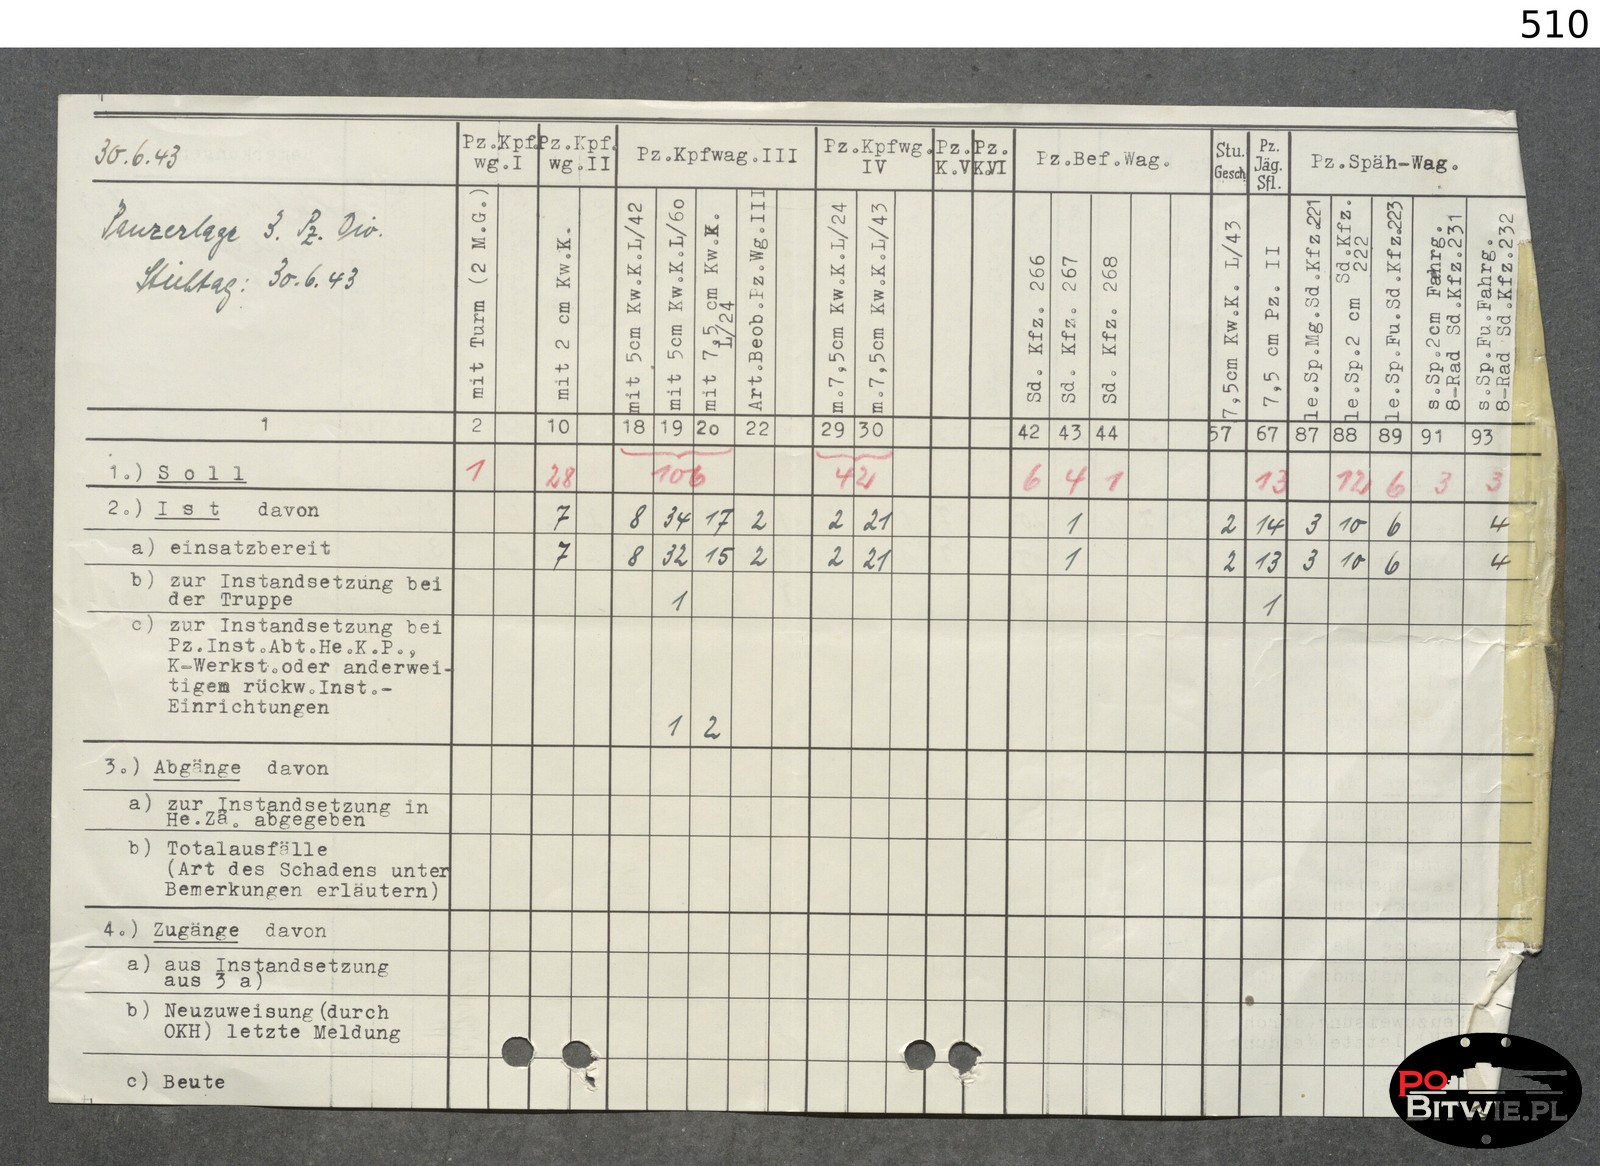 510
30.6.43
Panzerlage 3. Pz. Div.
Stichtag: 30.6.43
Pz.Kpf. wg.I
Pz.Kpf. wg.II
Pz.Kpfwag.III
Pz.Kpfwg. IV
Pz. K.V
Pz. K.VI
Pz.Bef.Wag.
Stu. Gesch
Pz. Jäg. Sfl.
Pz.Späh-Wag.
mit Turm (2 M.G.)
mit 2 cm Kw.K.
mit 5cm Kw.K.L/42
mit 5cm Kw.K.L/60
mit 7,5 cm Kw.K. L/24
Art.Beob.Pz.Wg.III
m.7,5cm Kw.K.L/24
m.7,5cm Kw.K.L/43
Sd. Kfz. 266
Sd. Kfz. 267
Sd. Kfz. 268
7,5cm Kw.K. L/43
7,5 cm Pz. II
le.Sp.Mg.Sd.Kfz.221
le.Sp.2 cm Sd.Kfz. 222
le.Sp.Fu.Sd.Kfz.223
s.Sp.2cm Fahrg. 8-Rad Sd.Kfz.231
s.Sp.Fu.Fahrg. 8-Rad Sd.Kfz.232
1 2 10 18 19 20 22 29 30 42 43 44 57 67 87 88 89 91 93
1.) Soll 1 28 106 42 6 4 1 13 12 6 3 3
2.) Ist davon 7 8 34 17 2 2 21 1 2 14 3 10 6 4
a) einsatzbereit 7 8 32 15 2 2 21 1 2 13 3 10 6 4
b) zur Instandsetzung bei
der Truppe 1 1
c) zur Instandsetzung bei
Pz.Inst.Abt.He.K.P.,
K-Werkst.oder anderwei-
tigem rückw.Inst.-
Einrichtungen
1 2
3.) Abgänge davon
a) zur Instandsetzung in
He.Za. abgegeben
b) Totalausfälle
(Art des Schadens unter
Bemerkungen erläutern)
4.) Zugänge davon
a) aus Instandsetzung
aus 3 a)
b) Neuzuweisung (durch
OKH) letzte Meldung
c) Beute
PO
BITWIE.PL